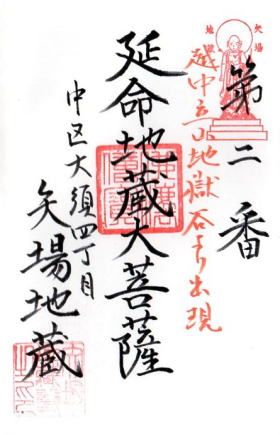 矢場
地蔵
第二番
越中立山地獄石より出現
延命地蔵大菩薩
中区大須四丁目
矢場地蔵